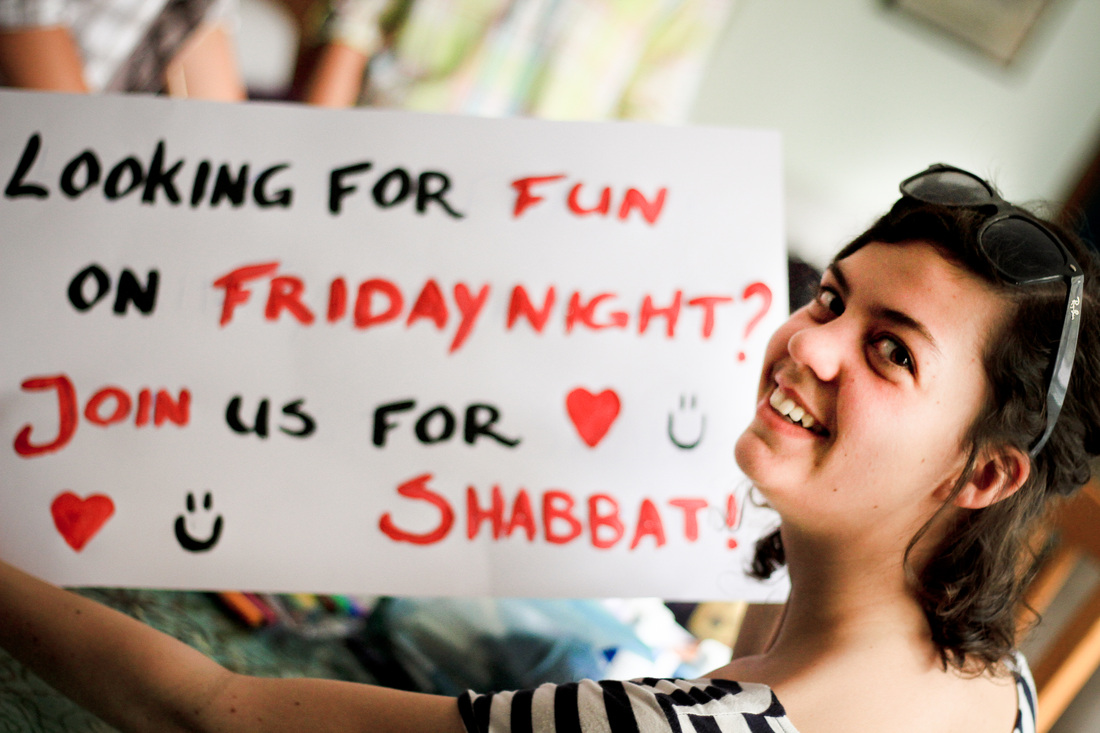 LOOKING FOR FUN
ON FRIDAY NIGHT?
JOIN US FOR
SHABBAT!
Ray-Ban